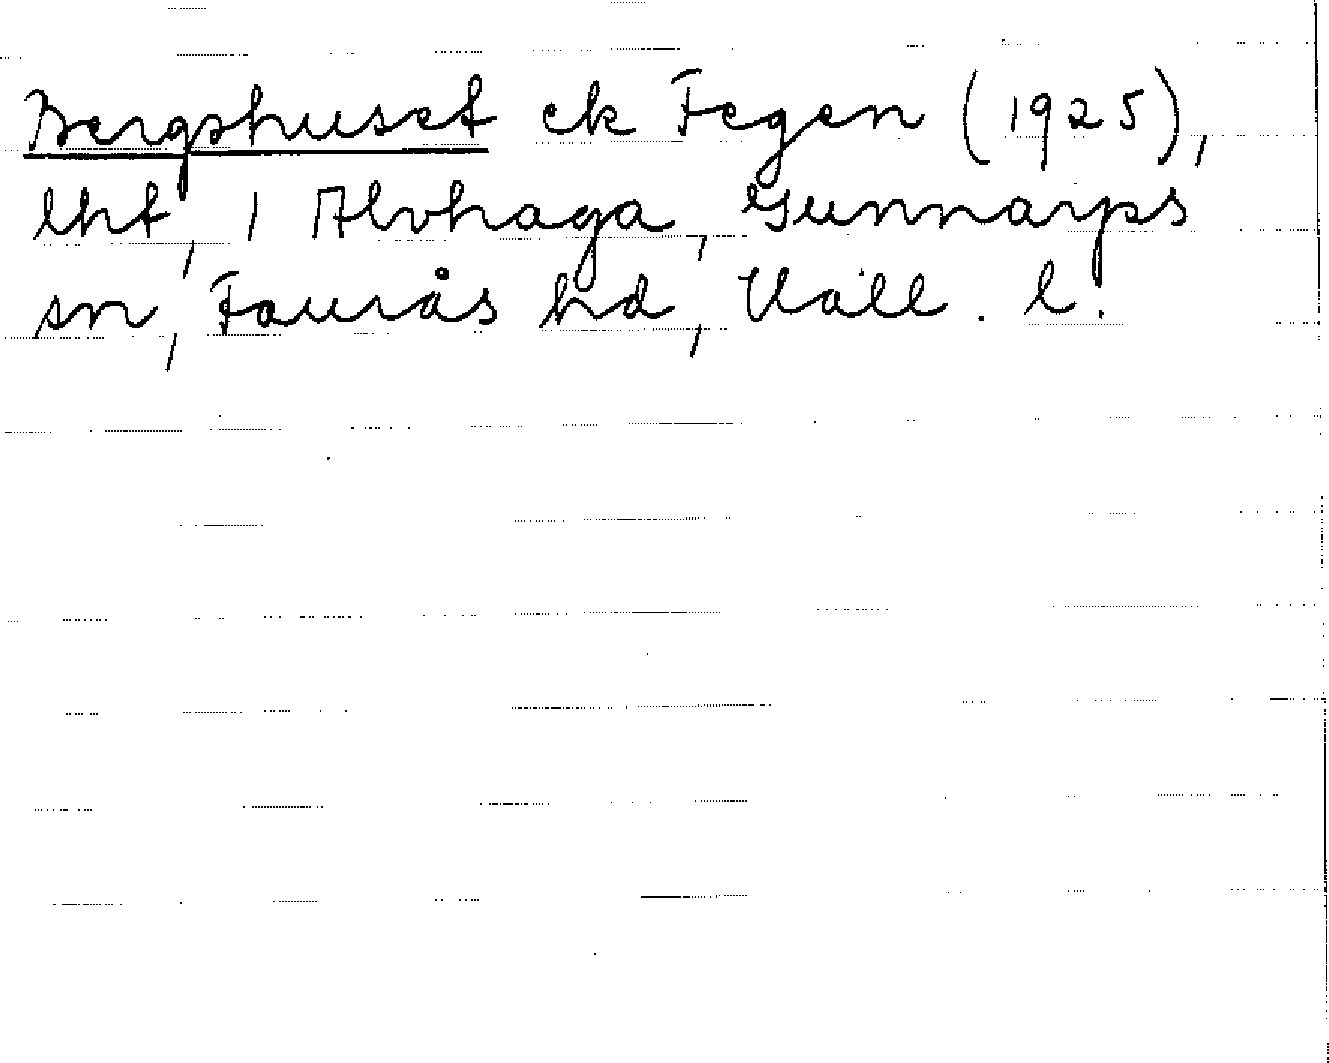 Bergshuset ek Fegen (1925),
lht, 1 Alvhaga, Gunnarps
sn, Faurås hd, Hall. l.